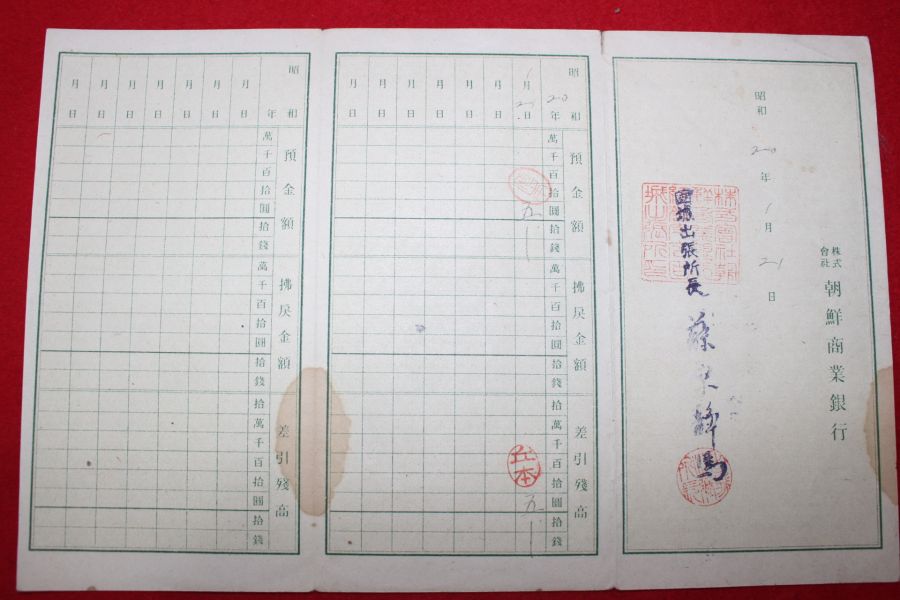 株式會社 朝鮮商業銀行
昭和 20 年 1 月 21 日
出張所長
昭和 20 年
1 月 21 日
月 日
月 日
月 日
月 日
月 日
月 日
預金額
萬 千 百 拾 圓 拾 錢
五 一
拂戻金額
萬 千 百 拾 圓 拾 錢
差引殘高
拾 萬 千 百 拾 圓 拾 錢
五 一
丘本
昭和 年
月 日
月 日
月 日
月 日
月 日
月 日
月 日
預金額
萬 千 百 拾 圓 拾 錢
拂戻金額
萬 千 百 拾 圓 拾 錢
差引殘高
拾 萬 千 百 拾 圓 拾 錢